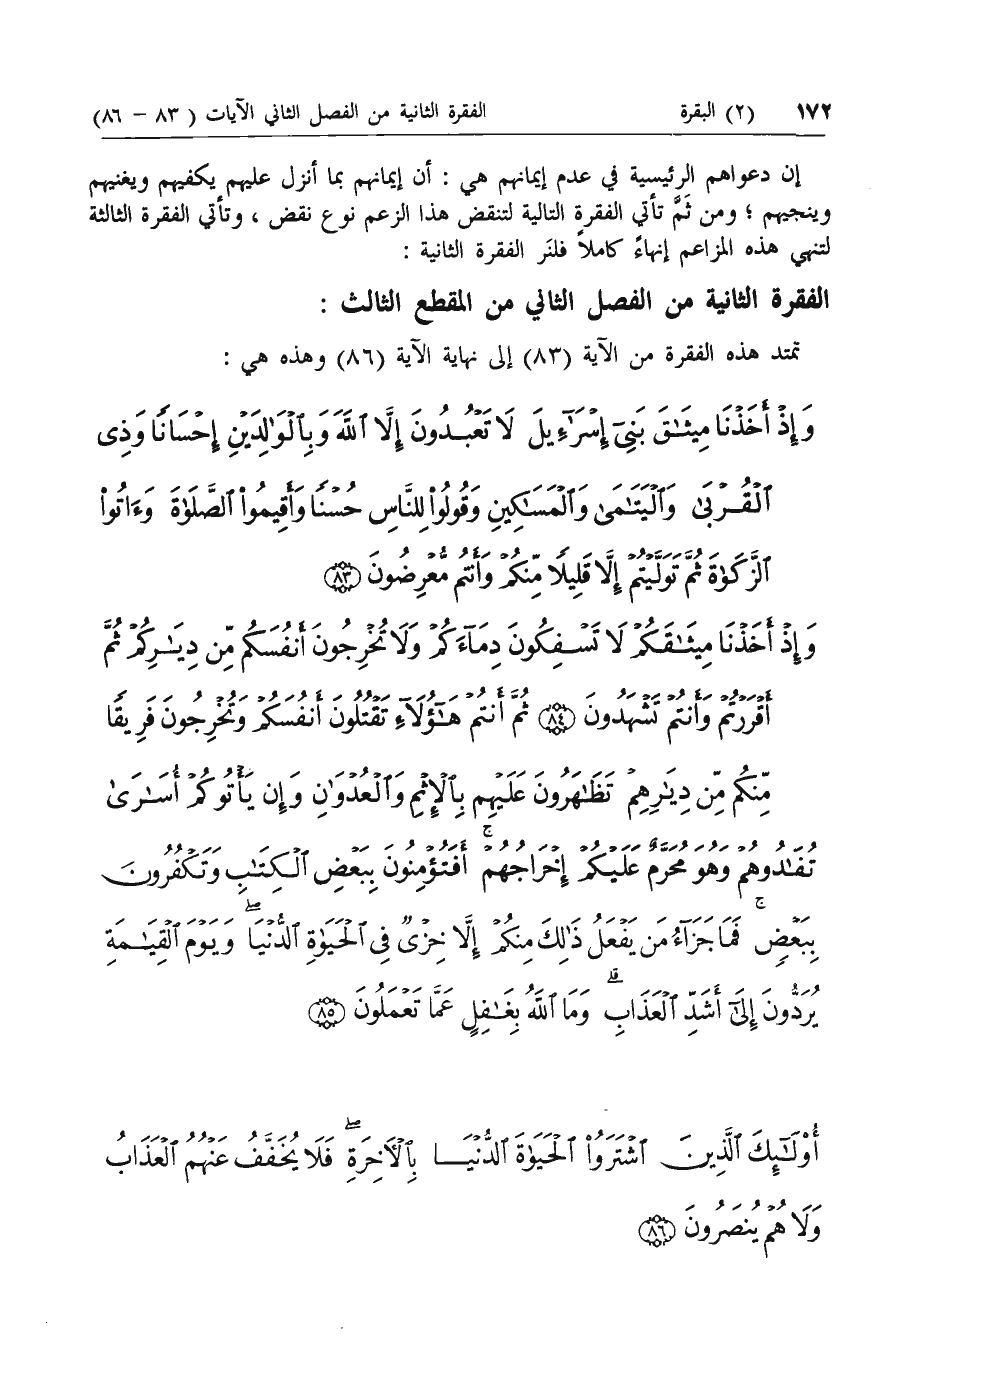 ١٧٢ (٢) البقرة الفقرة الثانية من الفصل الثاني الآيات ( ٨٣ – ٨٦)
إن دعواهم الرئيسية في عدم إيمانهم هي : أن إيمانهم بما أنزل عليهم يكفيهم ويغنيهم
وينجيهم ؛ ومن ثَمَّ تأتي الفقرة التالية لتنقض هذا الزعم نوع نقض ، وتأتي الفقرة الثالثة
لتنهي هذه المزاعم إنهاءً كاملاً فلنَر الفقرة الثانية :
الفقرة الثانية من الفصل الثاني من المقطع الثالث :
تمتد هذه الفقرة من الآية (٨٣) إلى نهاية الآية (٨٦) وهذه هي :
وَإِذْ أَخَذْنَا مِيثَٰقَ بَنِىٓ إِسْرَٰٓءِيلَ لَا تَعْبُدُونَ إِلَّا ٱللَّهَ وَبِٱلْوَٰلِدَيْنِ إِحْسَانًا وَذِى
ٱلْقُرْبَىٰ وَٱلْيَتَٰمَىٰ وَٱلْمَسَٰكِينِ وَقُولُوا۟ لِلنَّاسِ حُسْنًا وَأَقِيمُوا۟ ٱلصَّلَوٰةَ وَءَاتُوا۟
ٱلزَّكَوٰةَ ثُمَّ تَوَلَّيْتُمْ إِلَّا قَلِيلًا مِّنكُمْ وَأَنتُم مُّعْرِضُونَ ﴿٨٣﴾
وَإِذْ أَخَذْنَا مِيثَٰقَكُمْ لَا تَسْفِكُونَ دِمَآءَكُمْ وَلَا تُخْرِجُونَ أَنفُسَكُم مِّن دِيَٰرِكُمْ ثُمَّ
أَقْرَرْتُمْ وَأَنتُمْ تَشْهَدُونَ ﴿٨٤﴾ ثُمَّ أَنتُمْ هَٰٓؤُلَآءِ تَقْتُلُونَ أَنفُسَكُمْ وَتُخْرِجُونَ فَرِيقًا
مِّنكُم مِّن دِيَٰرِهِمْ تَظَٰهَرُونَ عَلَيْهِم بِٱلْإِثْمِ وَٱلْعُدْوَٰنِ وَإِن يَأْتُوكُمْ أُسَٰرَىٰ
تُفَٰدُوهُمْ وَهُوَ مُحَرَّمٌ عَلَيْكُمْ إِخْرَاجُهُمْ ۚ أَفَتُؤْمِنُونَ بِبَعْضِ ٱلْكِتَٰبِ وَتَكْفُرُونَ
بِبَعْضٍ ۚ فَمَا جَزَآءُ مَن يَفْعَلُ ذَٰلِكَ مِنكُمْ إِلَّا خِزْىٌ فِى ٱلْحَيَوٰةِ ٱلدُّنْيَا ۖ وَيَوْمَ ٱلْقِيَٰمَةِ
يُرَدُّونَ إِلَىٰٓ أَشَدِّ ٱلْعَذَابِ ۗ وَمَا ٱللَّهُ بِغَٰفِلٍ عَمَّا تَعْمَلُونَ ﴿٨٥﴾
أُو۟لَٰٓئِكَ ٱلَّذِينَ ٱشْتَرَوُا۟ ٱلْحَيَوٰةَ ٱلدُّنْيَا بِٱلْءَاخِرَةِ ۖ فَلَا يُخَفَّفُ عَنْهُمُ ٱلْعَذَابُ
وَلَا هُمْ يُنصَرُونَ ﴿٨٦﴾